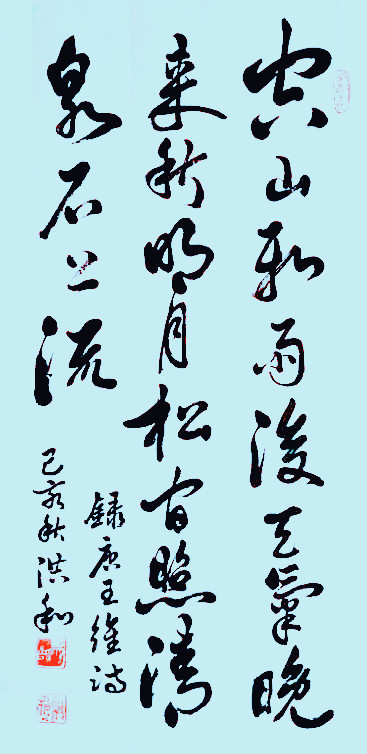 空山新雨後天氣晚
来秋明月松间照清
泉石上流
錄唐王維诗
己亥秋洪和